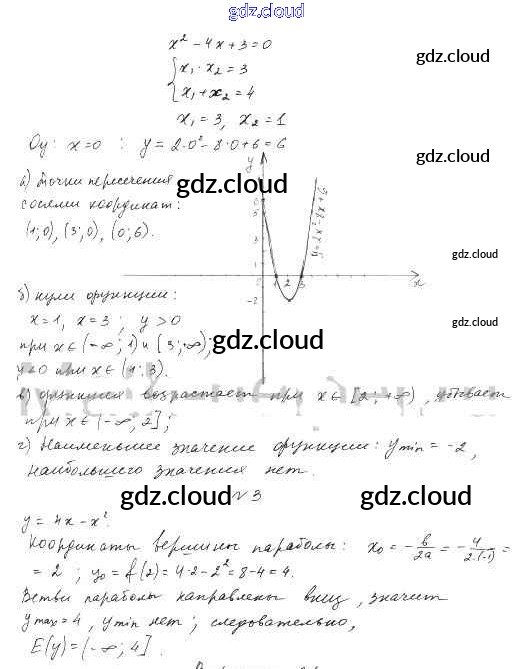 gdz.cloud
x² - 4x + 3 = 0
gdz.cloud
{ x₁ · x₂ = 3
x₁ + x₂ = 4
x₁ = 3, x₂ = 1
Oy: x = 0 : y = 2·0² - 8·0 + 6 = 6
gdz.cloud
а) Точки пересечения
gdz.cloud
с осями координат:
(1; 0), (3; 0), (0; 6).
y
6
5
3
1
-2
1 2 3
x
y = 2x² - 8x + 6
gdz.cloud
б) нули функции:
x = 1, x = 3 ; y > 0
gdz.cloud
при x ∈ (-∞; 1) и [3; +∞);
gdz.cloud
y < 0 при x ∈ (1; 3).
в) функция возрастает при x ∈ [2; +∞), убывает
при x ∈ (-∞; 2];
г) Наименьшее значение функции: y min = -2,
наибольшего значения нет.
gdz.cloud
№3
gdz.cloud
y = 4x - x².
Координаты вершины параболы: x₀ = -в/2a = -4/2·(-1) =
= 2 ; y₀ = f(2) = 4·2 - 2² = 8 - 4 = 4.
Ветви параболы направлены вниз, значит
y max = 4, y min нет ; следовательно,
E(y) = (-∞; 4].